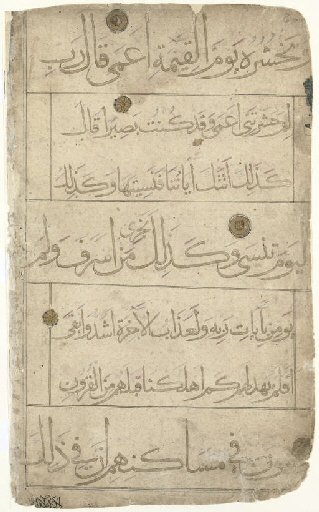 نحشره يوم القيمة اعمى قال رب
لم حشرتنى اعمى وقد كنت بصيرا قال
كذلك أتتك آياتنا فنسيتها وكذلك
اليوم تنسى وكذلك نجزى من اسرف ولم
يومن بآيات ربه ولعذاب الآخرة اشد وابقى
افلم يهد لهم كم اهلكنا قبلهم من القرون
فى مساكنهم ان فى ذلك